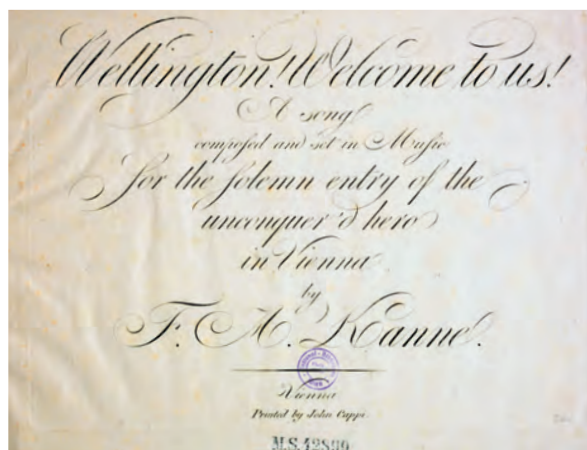 Wellington! Welcome to us!
A song
composed and set in Music
for the solemn entry of the
unconquer'd hero
in Vienna
by
F. A. Kanne.
Vienna
Printed by John Cappi.
M.S. 42899